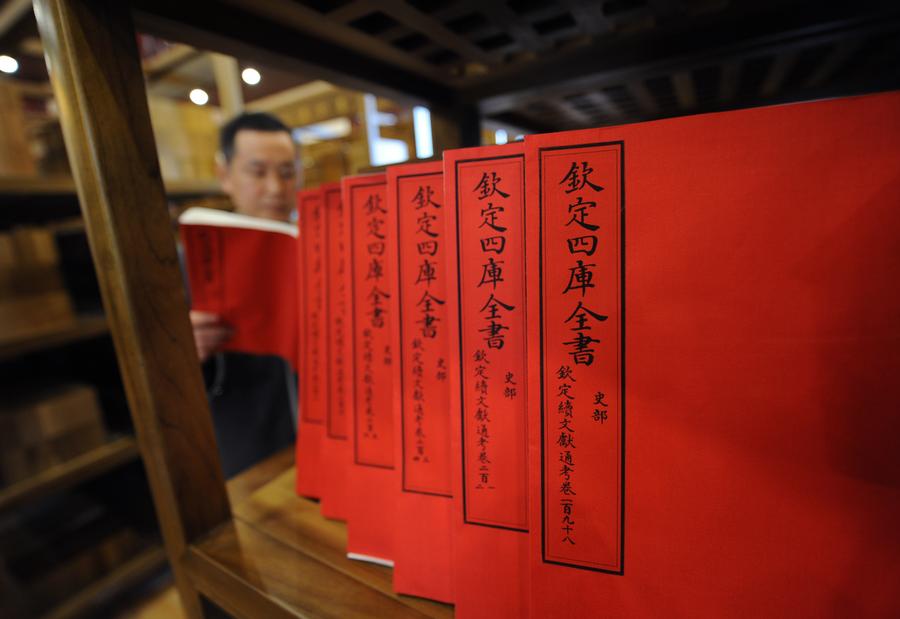 欽定四庫全書
史部
欽定續文獻通考卷一百九十八
欽定四庫全書
史部
欽定續文獻通考卷二百一
二
欽定四庫全書
史部
欽定續文獻通考卷二百
欽定四庫全書
史部
欽定續文獻通考卷